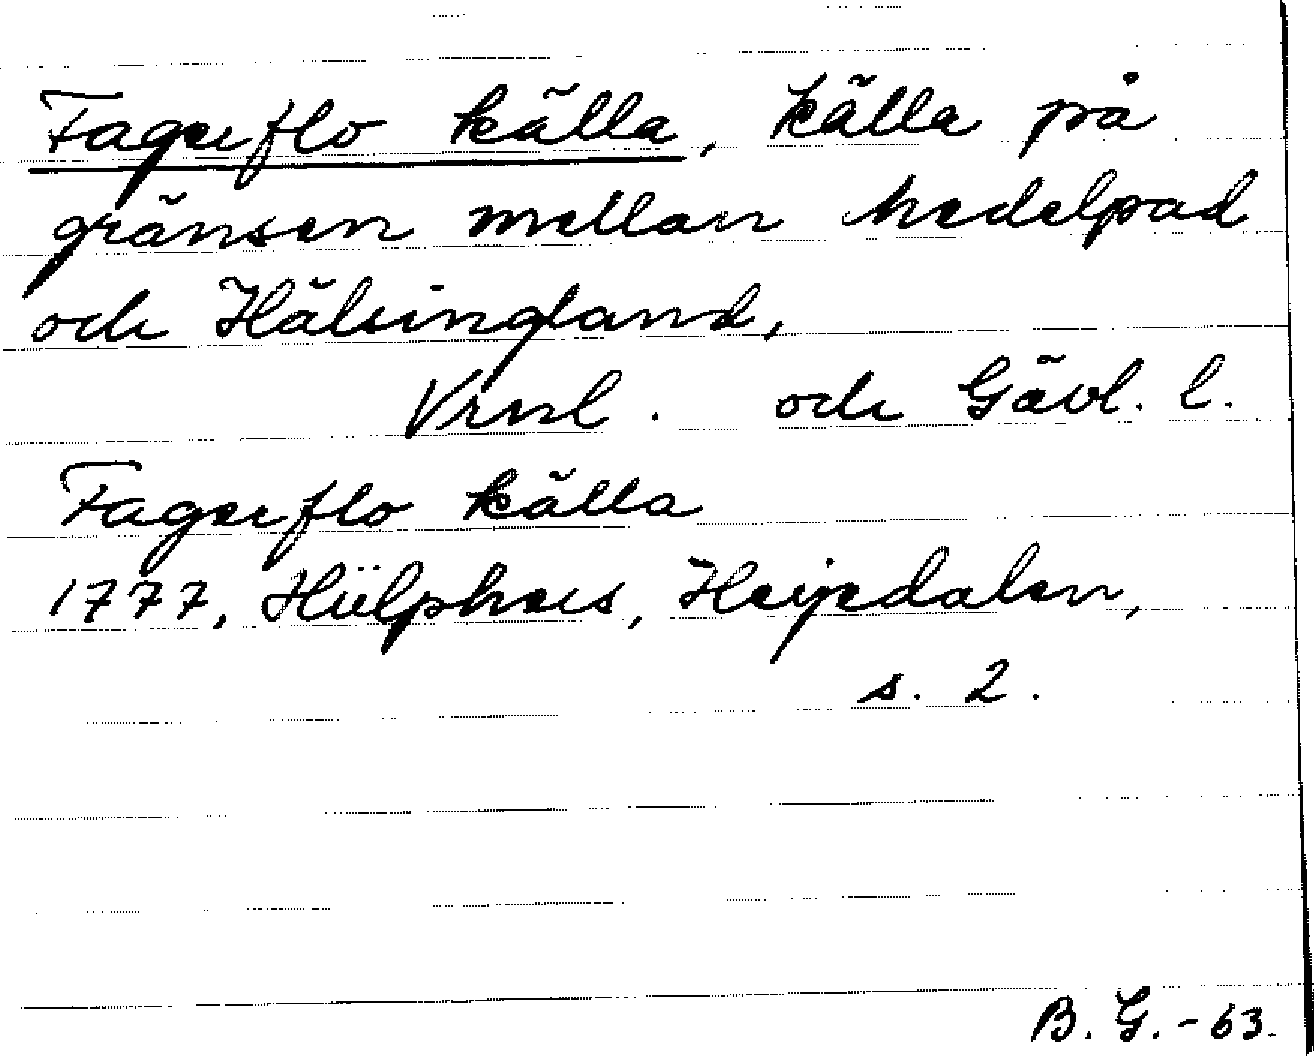 Fagerflo källa, källa på
gränsen mellan Medelpad
och Hälsingland,
Vrnl. och Gävl. l.
Fagerflo källa
1777, Hülphers, Herjedalen,
s. 2.
B. G. - 63.